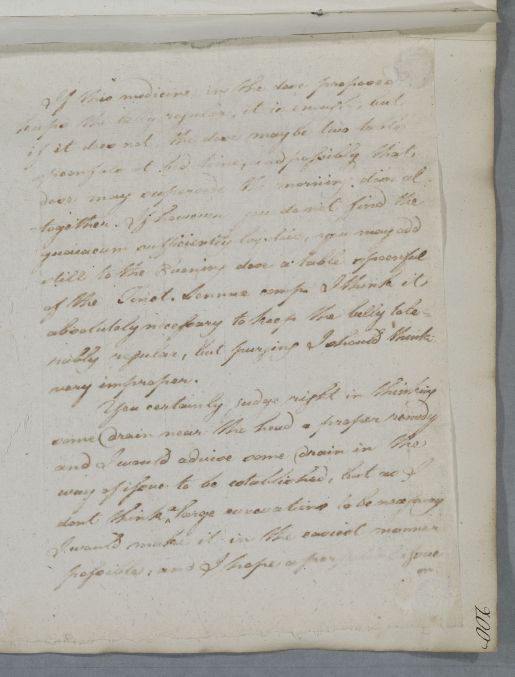 If this medicine in the dose proposed
keeps the belly regular, it is enough, but
if it does not, the dose may be two table
spoonfuls at bed time, and possibly that
dose may supersede the morning dose al-
-together. If however you do not find the
guaiacum sufficiently laxative, you may add
still to the Evening dose a table spoonful
of the Tinct. Sennae comp. I think it
absolutely necessary to keep the belly tole-
rably regular, but purging I should think
very improper.
You certainly judge right in thinking
some drain near the head a proper remedy
and I would advise some drain in the
way of issue to be established, but as I
dont think a large evacuation to be necessary
I would make it in the easiest manner
possible; and I hope a issue
on
200